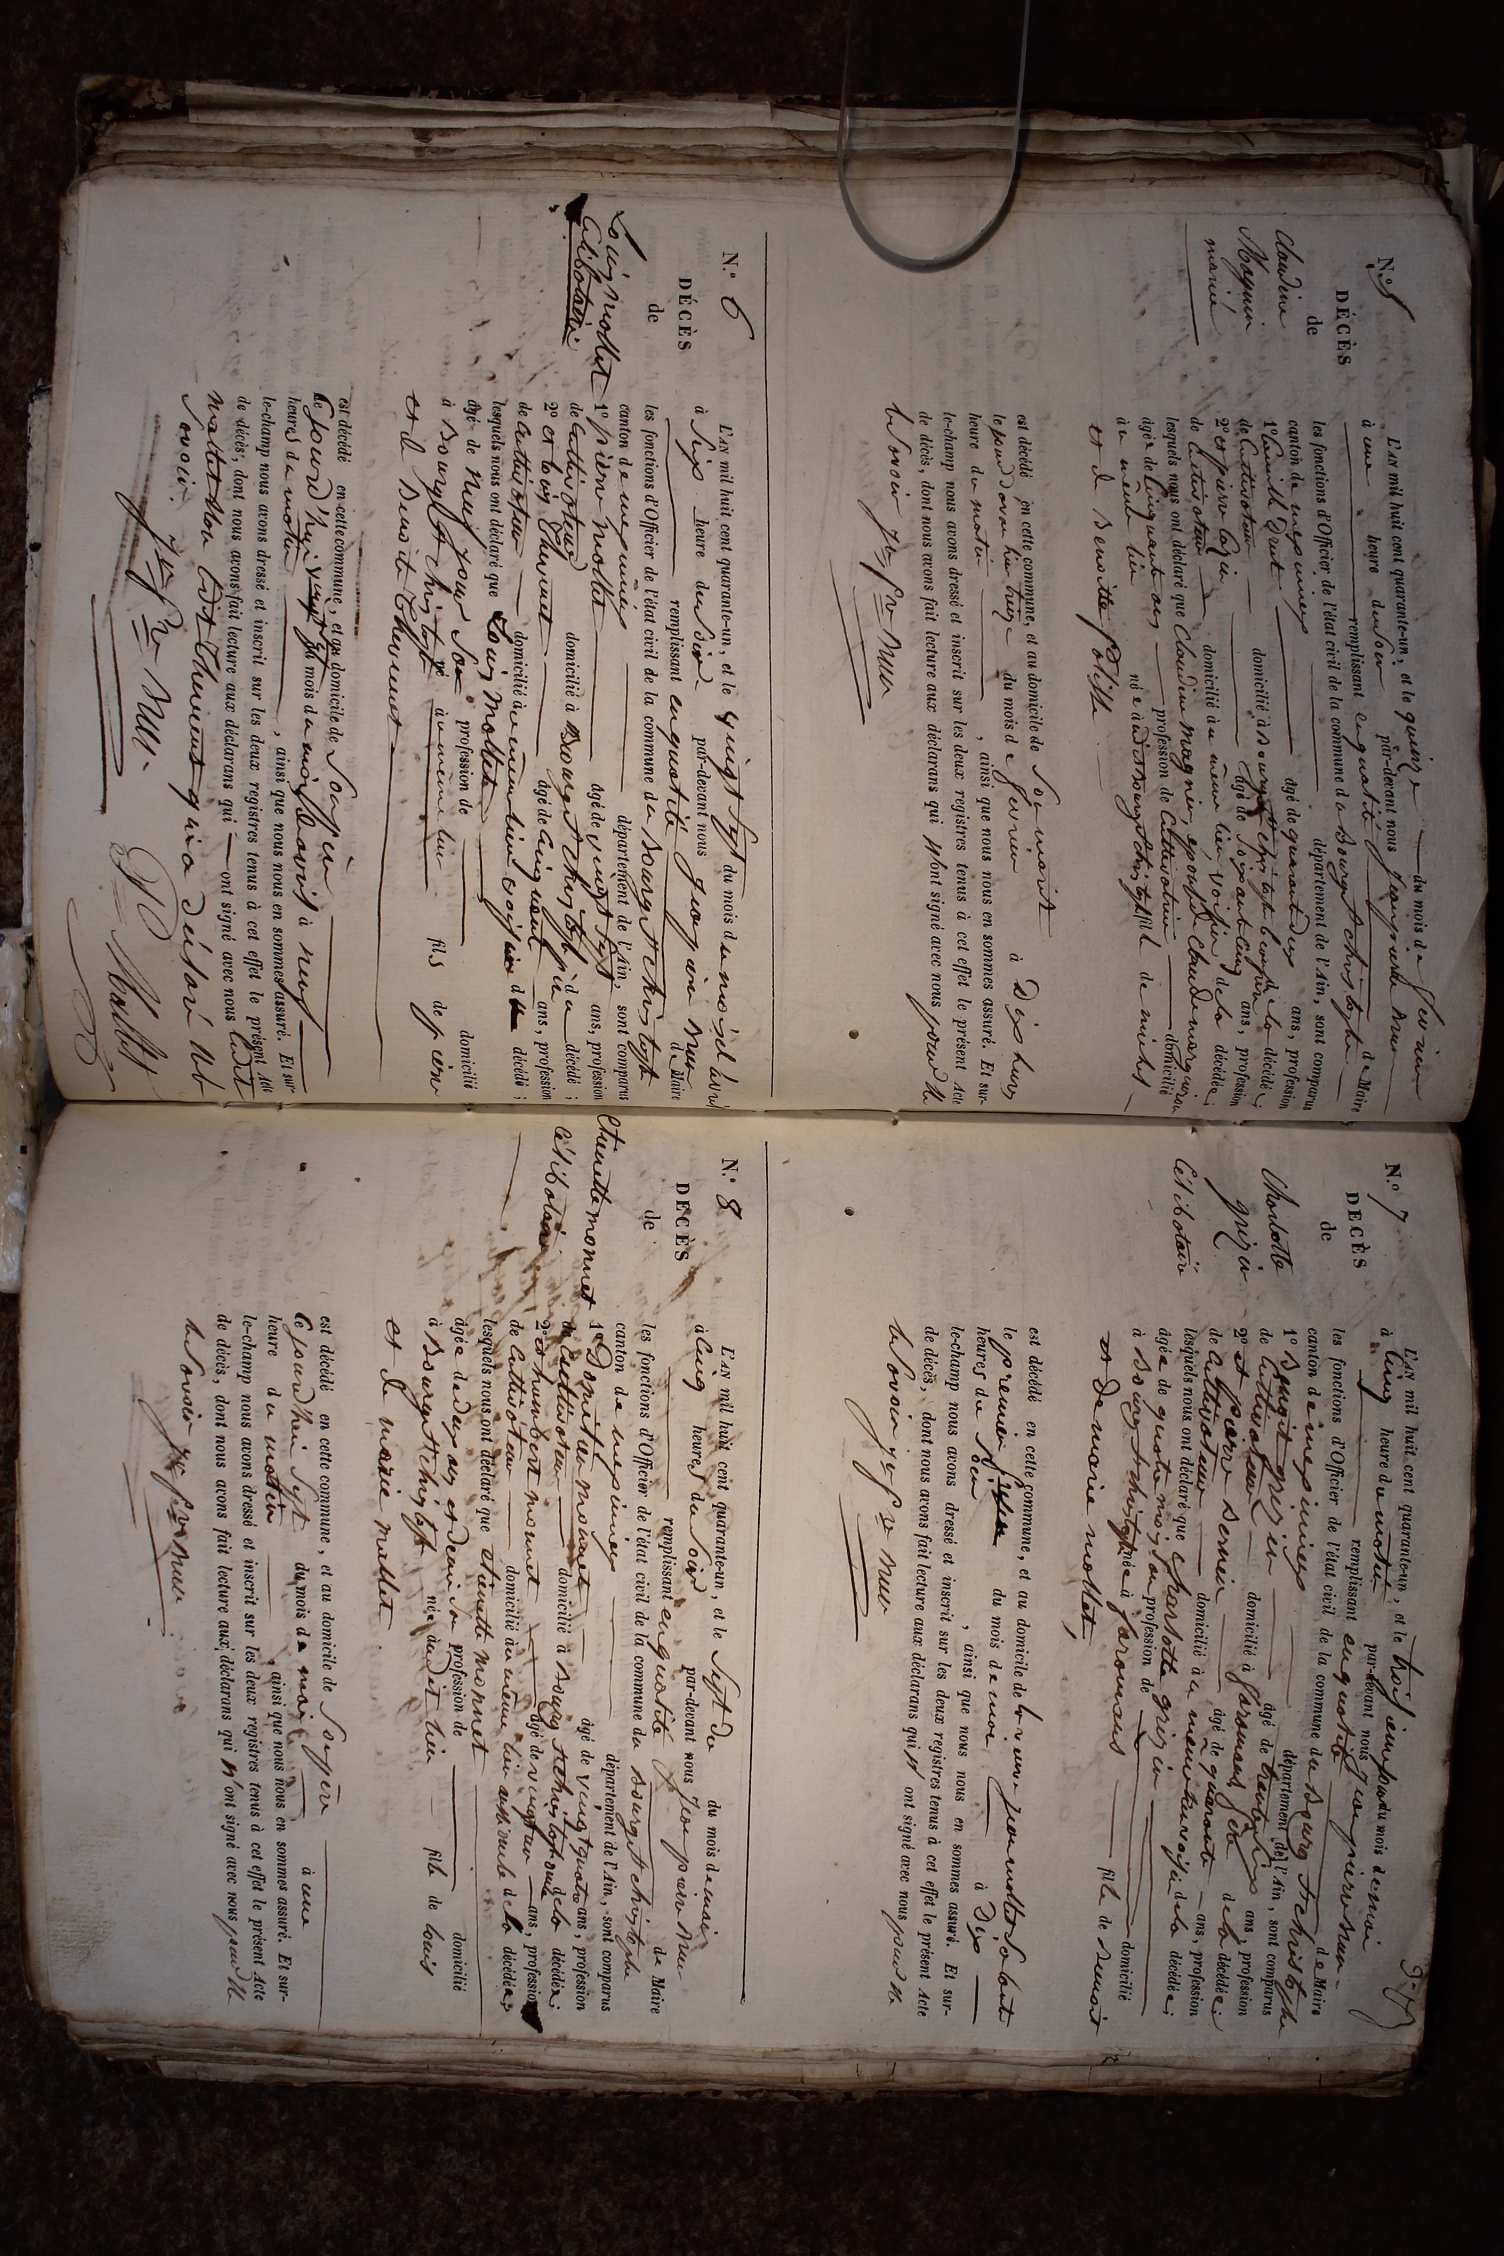 N.° 5
DÉCÈS
de
Claudine
Magnin
mariée
L'AN mil huit cent quarante-un, et le quinze du mois de fevrier
à une heure du soir par-devant nous jean pierre
remplissant en qualité de Maire
les fonctions d'Officier de l'état civil de la commune de Bourg St christophe
canton de meximieux département de l'Ain, sont comparus
1° âgé de quarante deux ans, profession
de Cultivateur domicilié à Bourg St christophe de la décédée;
2° et pierre âgé de soixante cinq ans, profession
de Cultivateur domicilié à u même lieu, voisin de la décédée;
lesquels nous ont déclaré que Claudine magnin, epouse de Claude
âgée de Cinquante ans profession de Cultivatrice domicilié
à u même lieu né e à dit Bourg St christophe fille de
et de benoitte
est décédé en cette commune, et au domicile de Son mari à Dix heures
le jour d'avant hier treize du mois de fevrier
heure du matin , ainsi que nous nous en sommes assuré. Et sur-
le-champ nous avons dressé et inscrit sur les deux registres tenus à cet effet le présent Acte
de décès, dont nous avons fait lecture aux déclarans qui n'ont signé avec nous pour ne
le Savoir
N.° 6
DÉCÈS
de
Louis mollet
Célibataire
L'AN mil huit cent quarante-un, et le vingt sept du mois du mois d'avril
à Six heure du Soir par-devant nous jean pierre
remplissant en qualité de Maire
les fonctions d'Officier de l'état civil de la commune de Bourg St christophe
canton de meximieux département de l'Ain, sont comparus
1° pierre mollet âgé de vingt sept ans, profession
de Cultivateur domicilié à Bourg St christophe du décédé;
2° et Louis Thevenet âgé de Cinquante ans, profession
de Cultivateur domicilié à u même lieu voisin du décédé;
lesquels nous ont déclaré que Louis mollet
âgé de Neuf jour profession de domicilié
à Bourg St christophe né à u même lieu fils de pierre
et de Benoite Thevenet
est décédé en cette commune, et au domicile de Son père
le jourd'hui vingt sept du mois du mois d'avril à neuf
heures du matin , ainsi que nous nous en sommes assuré. Et sur-
le-champ nous avons dressé et inscrit sur les deux registres tenus à cet effet le présent Acte
de décès, dont nous avons fait lecture aux déclarans qui ont signé avec nous ledit
mollet Thevenet qui a déclaré ne le
Savoir.
Mollet
N.° 7
DÉCÈS
de
Charlotte
Célibataire
L'AN mil huit cent quarante-un, et le troisième jour du mois de mai
à Cinq heure du matin par-devant nous jean pierre
remplissant en qualité de Maire
les fonctions d'Officier de l'état civil de la commune de Bourg St christophe
canton de meximieux département de l'Ain, sont comparus
1° Benoit âgé de trente Cinq ans, profession
de Cultivateur domicilié à de la décédée;
2° et pierre âgé de quarante ans, profession
de Cultivateur domicilié à u même lieu voisin de la décédée;
lesquels nous ont déclaré que Charlotte
âgée de quatre mois profession de domicilié
à Bourg St christophe née à fille de Benoit
et De marie mollet,
est décédé en cette commune, et au domicile de la veuve
le premier du mois de mai à Dix
heures du Soir , ainsi que nous nous en sommes assuré. Et sur-
le-champ nous avons dressé et inscrit sur les deux registres tenus à cet effet le présent Acte
de décès, dont nous avons fait lecture aux déclarans qui n'ont signé avec nous pour ne
le Savoir
N.° 8
DÉCÈS
de
Etiennette monnet
Célibataire
L'AN mil huit cent quarante-un, et le Sept du du mois de mai
à Cinq heures du Soir par-devant nous jean pierre
remplissant en qualité de Maire
les fonctions d'Officier de l'état civil de la commune du Bourg St christophe
canton de meximieux département de l'Ain, sont comparus
1° monnet âgé de vingt quatre ans, profession
de Cultivateur domicilié à Bourg St christophe oncle de la décédée;
2° et humbert monnet âgé de vingt un ans, profession
de Cultivateur domicilié à u même lieu aussi oncle de la décédée;
lesquels nous ont déclaré que Etiennette monnet
âgée de deux ans et demi profession de domicilié
à Bourg St christophe née audit lieu fille de Louis
et de marie mollet
est décédé en cette commune, et au domicile de Son père
le jourd'hui Sept du mois de mai à une
heure du matin , ainsi que nous nous en sommes assuré. Et sur-
le-champ nous avons dressé et inscrit sur les deux registres tenus à cet effet le présent Acte
de décès, dont nous avons fait lecture aux déclarans qui n'ont signé avec nous pour ne
le Savoir